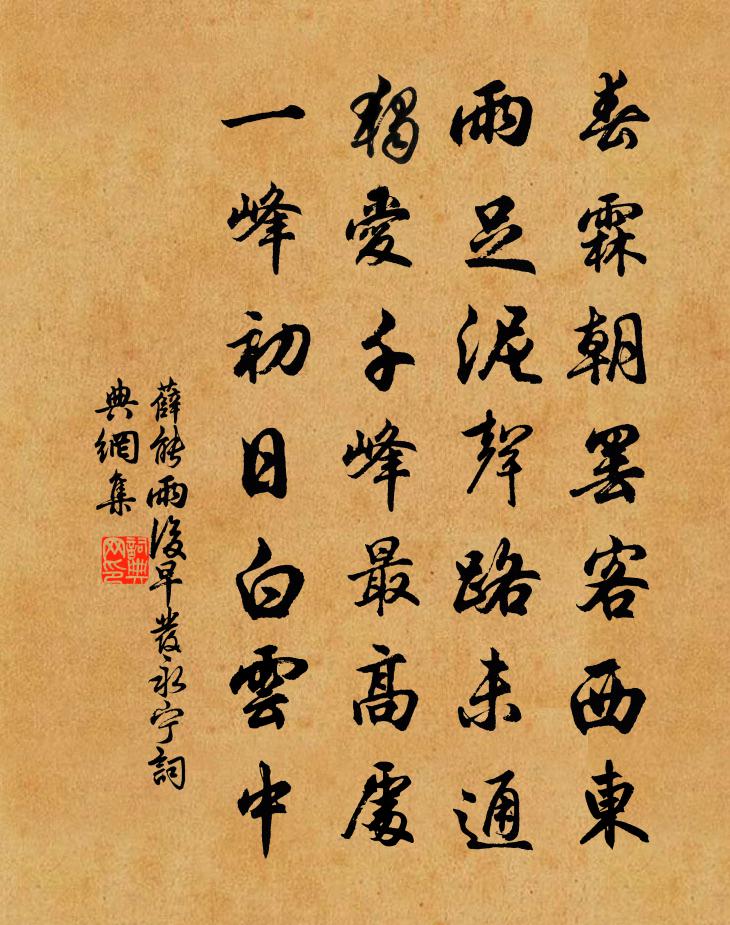 春霖朝罷客西東
雨足泥聲路未通
獨愛千峰最高處
一峰初日白雲中
薛能雨後早發永宁詞
典網集
詞典
网印